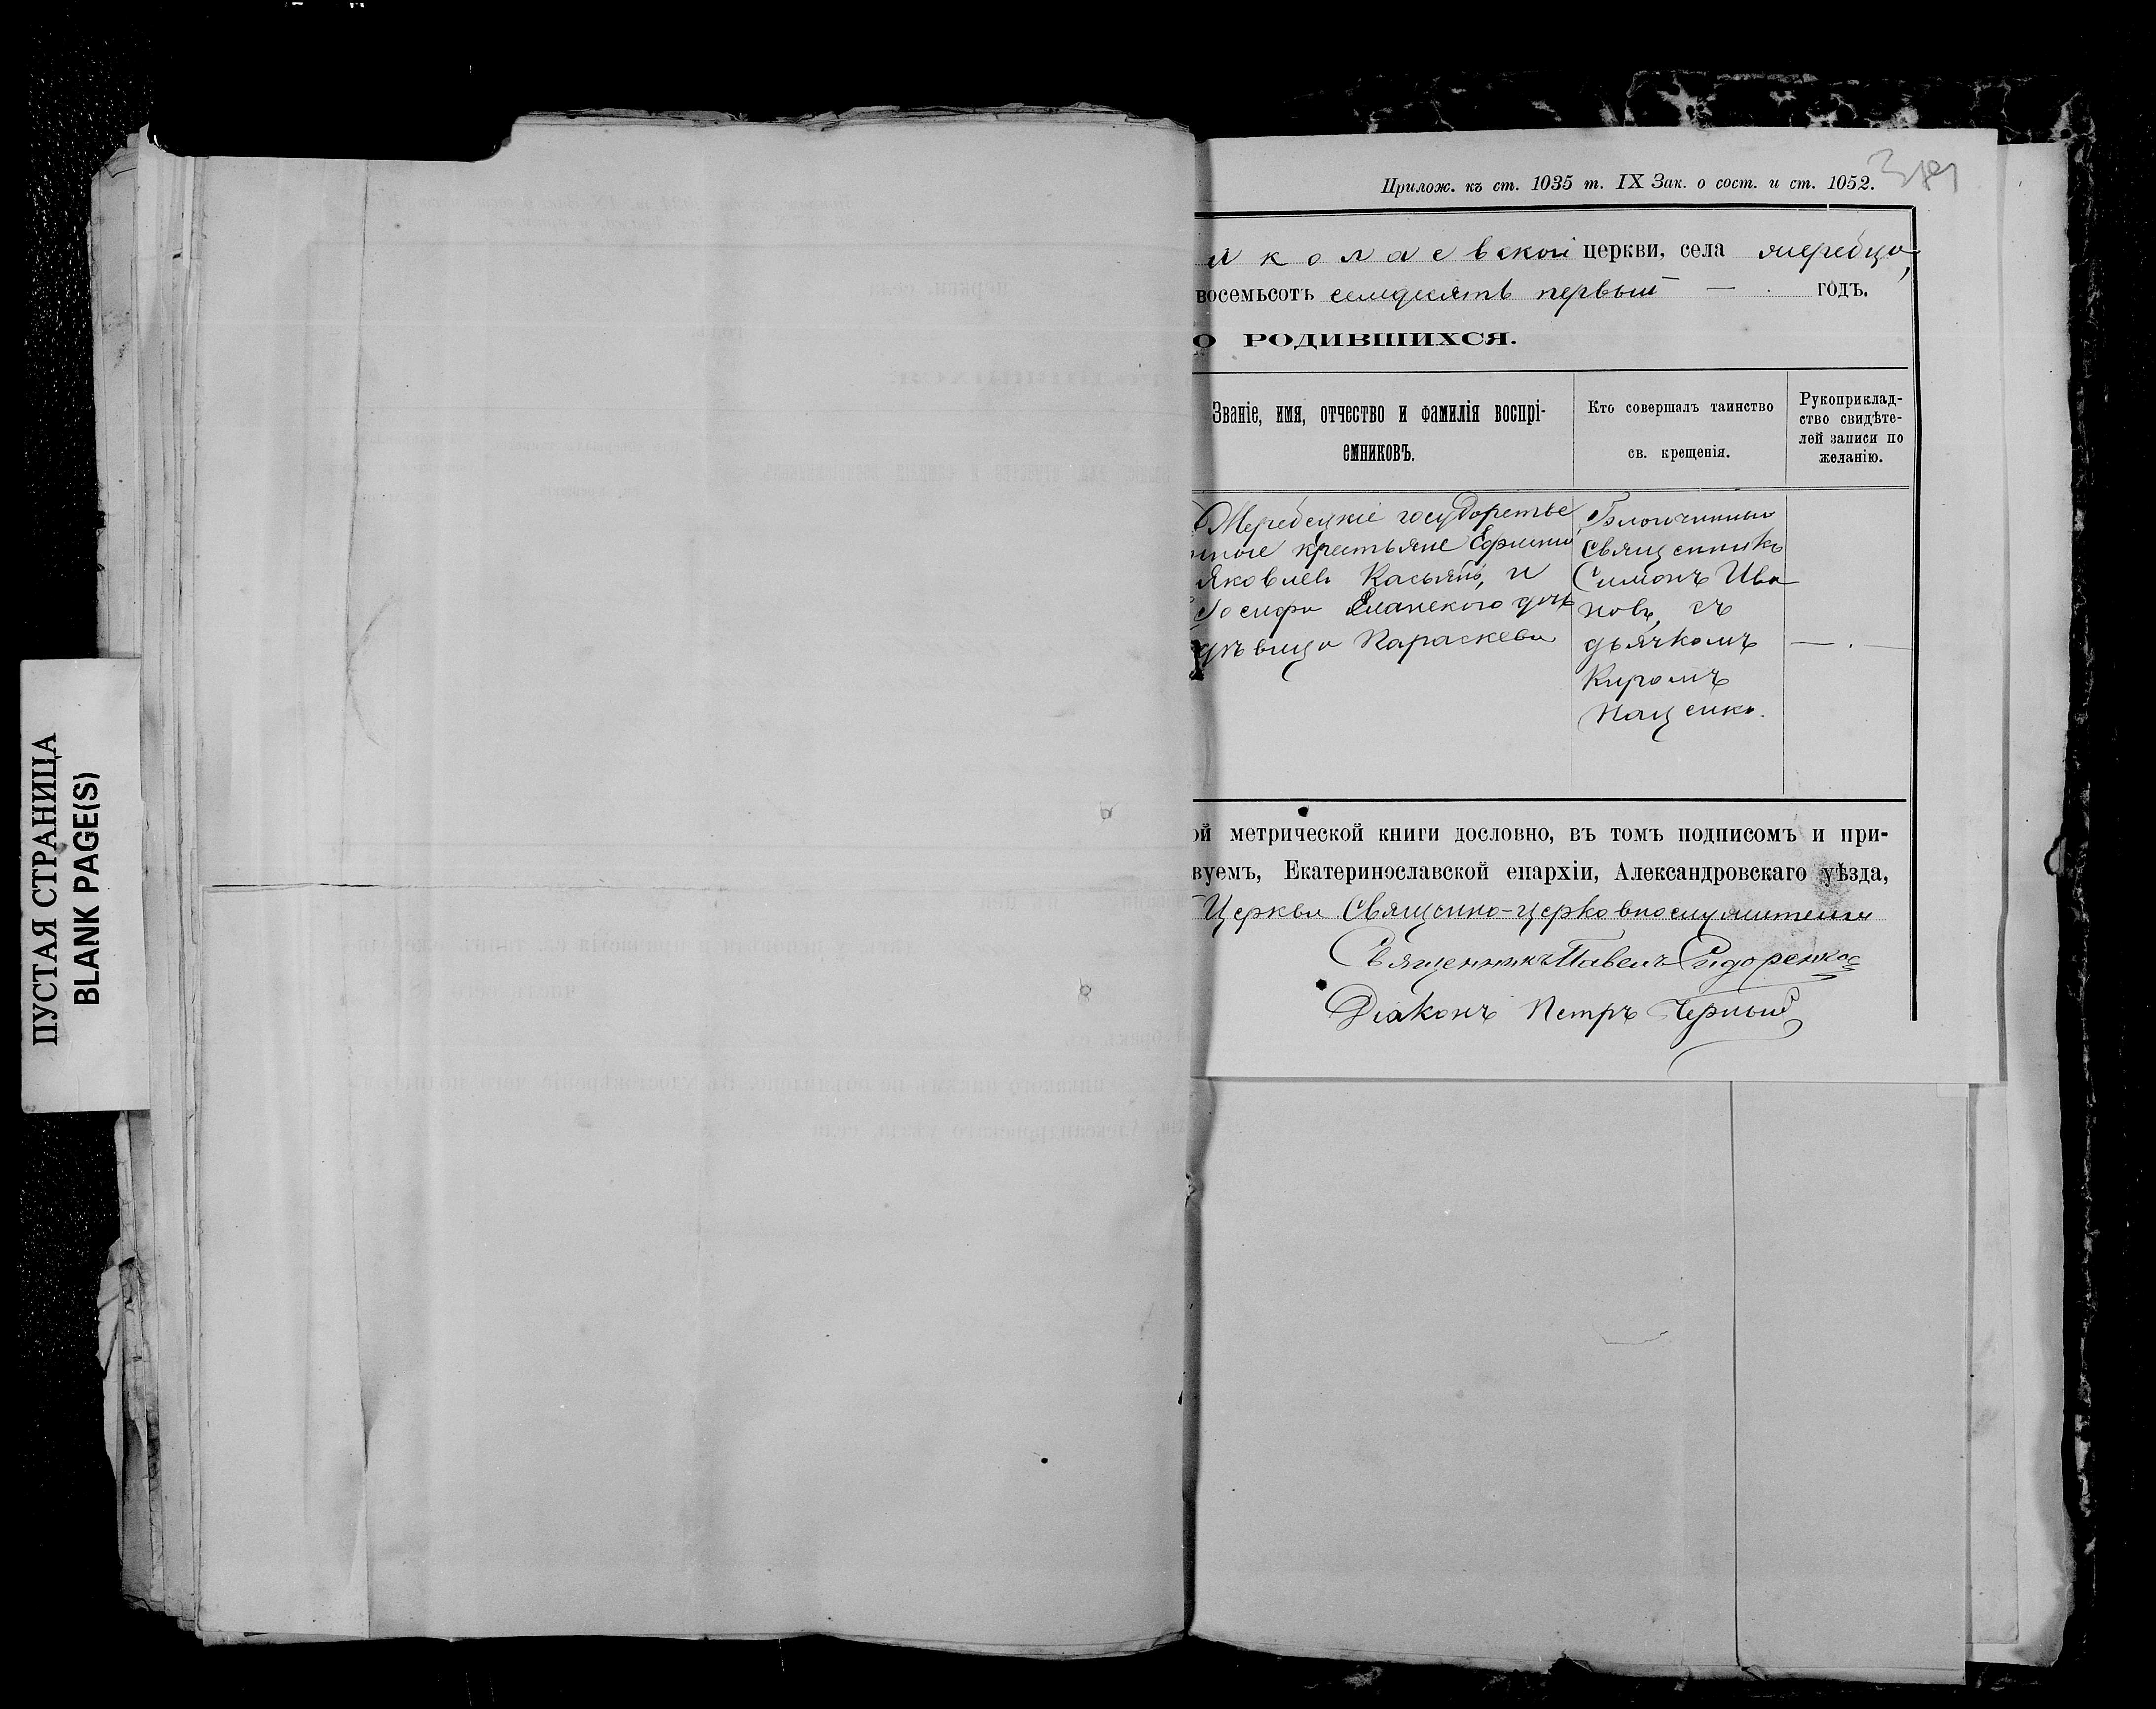 ПУСТАЯ СТРАНИЦА
BLANK PAGE(S)
Прилож. къ ст. 1035 т. IX Зак. о сост. и ст. 1052.
иколаевской церкви, села жеребца,
восемьсотъ семдесятъ первый — . годъ.
О РОДИВШИХСЯ.
Званіе, имя, отчество и фамилія воспрі-
емниковъ.
Кто совершалъ таинство
св. крещенія.
Рукоприклад-
ство свидѣте-
лей записи по
желанію.
Жеребецкіе государстве
нные крестьяне Ефимій
Яковлевъ Касьянъ, и
Іосифа дочь
дѣвица Параскева
Благочинный
Священникъ
Симонъ Ива
новъ, съ
дьячкомъ
Киромъ
Пащенко.
— . —
ой метрической книги дословно, въ томъ подписомъ и при-
вуемъ, Екатеринославской епархіи, Александровскаго уѣзда,
Церкви Священно-церковнослужители
Священникъ Павелъ Сидоренко
Діаконъ Петръ Черный